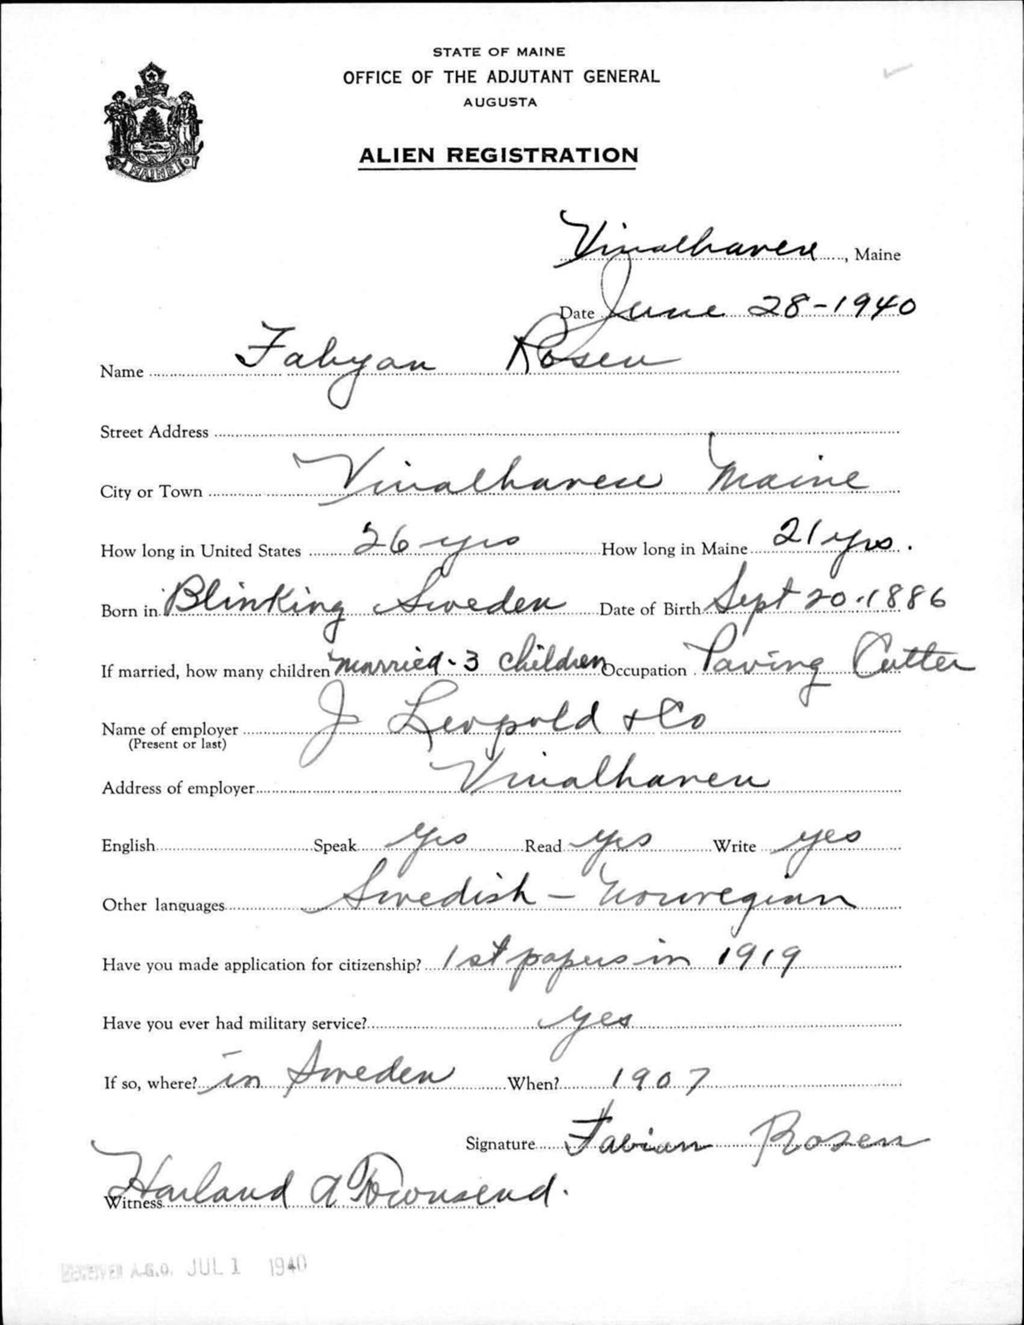 STATE OF MAINE
OFFICE OF THE ADJUTANT GENERAL
AUGUSTA
ALIEN REGISTRATION
MAINE
Vinalhaven, Maine
Date June 28-1940
Name Fabyan Rosen
Street Address
City or Town Vinalhaven Maine
How long in United States 26 yrs How long in Maine 21 yrs.
Born in Blinking Sweden Date of Birth Sept 20-1886
If married, how many children married-3 children Occupation Paving Cutter
Name of employer J Leopold + Co
(Present or last)
Address of employer Vinalhaven
English Speak Yes Read Yes Write yes
Other languages Swedish - Norwegian
Have you made application for citizenship? 1st papers in 1919
Have you ever had military service? Yes
If so, where? in Sweden When? 1907
Signature Fabian Rosen
Witness Harland A Townsend.
RECEIVED A.G.O. JUL 1 1940